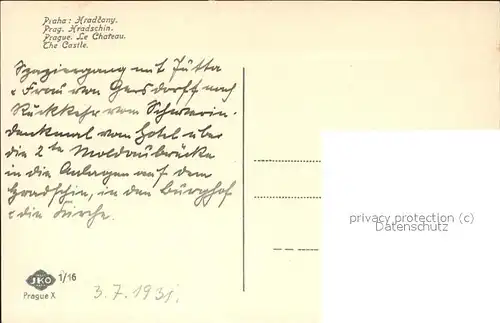 Praha: Hradčany.
Prag. Hradschin.
Prague. Le Chateau.
The Castle.
Spaziergang mit Jutta
& Frau von Gersdorff nach
Rückkehr vom Schwerin-
denkmal vom Hotel über
die 2te Moldaubrücke
in die Anlagen auf dem
Hradschin, in den Burghof
& die Kirche.
privacy protection (c)
Datenschutz
JKO 1/16
Prague X
3.7.1931.